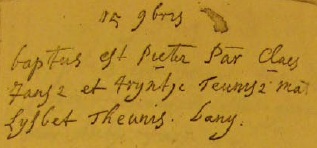 15 9bris
baptus est Pieter Par Claes
Jansz et tryntje Teunisz mat
Lysbet Theunis. Lany.